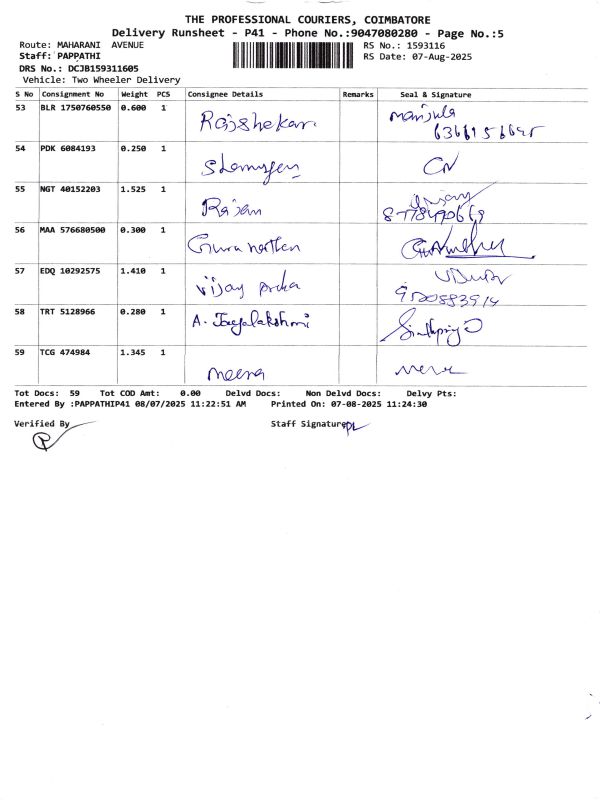 THE PROFESSIONAL COURIERS, COIMBATORE
Delivery Runsheet - P41 - Phone No.:9047080280 - Page No.:5
Route: MAHARANI AVENUE RS No.: 1593116
Staff: PAPPATHI RS Date: 07-Aug-2025
DRS No.: DCJB159311605
Vehicle: Two Wheeler Delivery
S No Consignment No Weight PCS Consignee Details Remarks Seal & Signature
53 BLR 1750760550 0.600 1 Rajshekar manjula
54 PDK 6084193 0.250 1
55 NGT 40152203 1.525 1 Rajan
56 MAA 576680500 0.300 1
57 EDQ 10292575 1.410 1 vijay
58 TRT 5128966 0.280 1 A. Jayalakshmi
59 TCG 474984 1.345 1 meena
Tot Docs: 59 Tot COD Amt: 0.00 Delvd Docs: Non Delvd Docs: Delvy Pts:
Entered By :PAPPATHIP41 08/07/2025 11:22:51 AM Printed On: 07-08-2025 11:24:30
Verified By Staff Signature